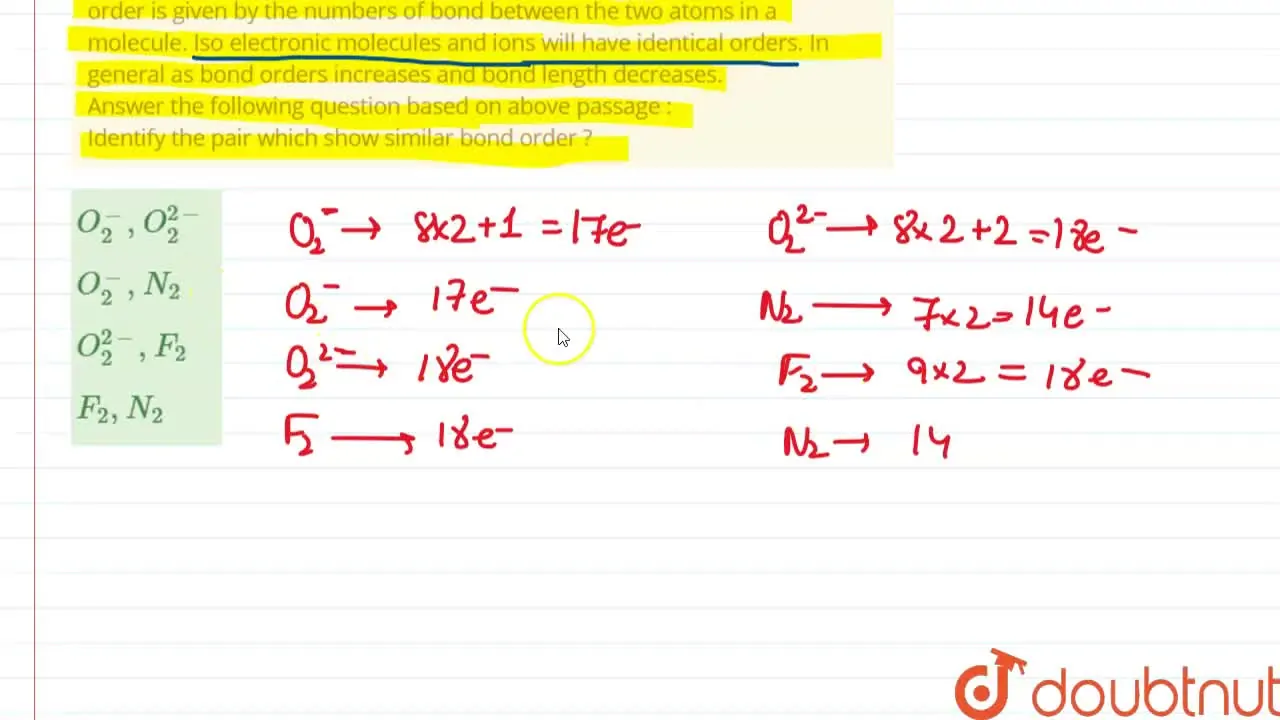 order is given by the numbers of bond between the two atoms in a
molecule. Iso electronic molecules and ions will have identical orders. In
general as bond orders increases and bond length decreases.
Answer the following question based on above passage :
Identify the pair which show similar bond order ?
O₂⁻ , O₂²⁻
O₂⁻ , N₂
O₂²⁻ , F₂
F₂, N₂
O₂⁻ → 8×2+1 = 17e⁻
O₂²⁻ → 8×2+2 = 18e⁻
O₂⁻ → 17e⁻
N₂ → 7×2 = 14e⁻
O₂²⁻ → 18e⁻
F₂ → 9×2 = 18e⁻
F₂ → 18e⁻
N₂ → 14
doubtnut